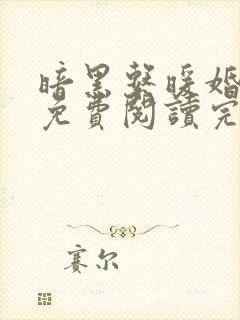 暗黑系暖婚
免費閱讀完
赛尔